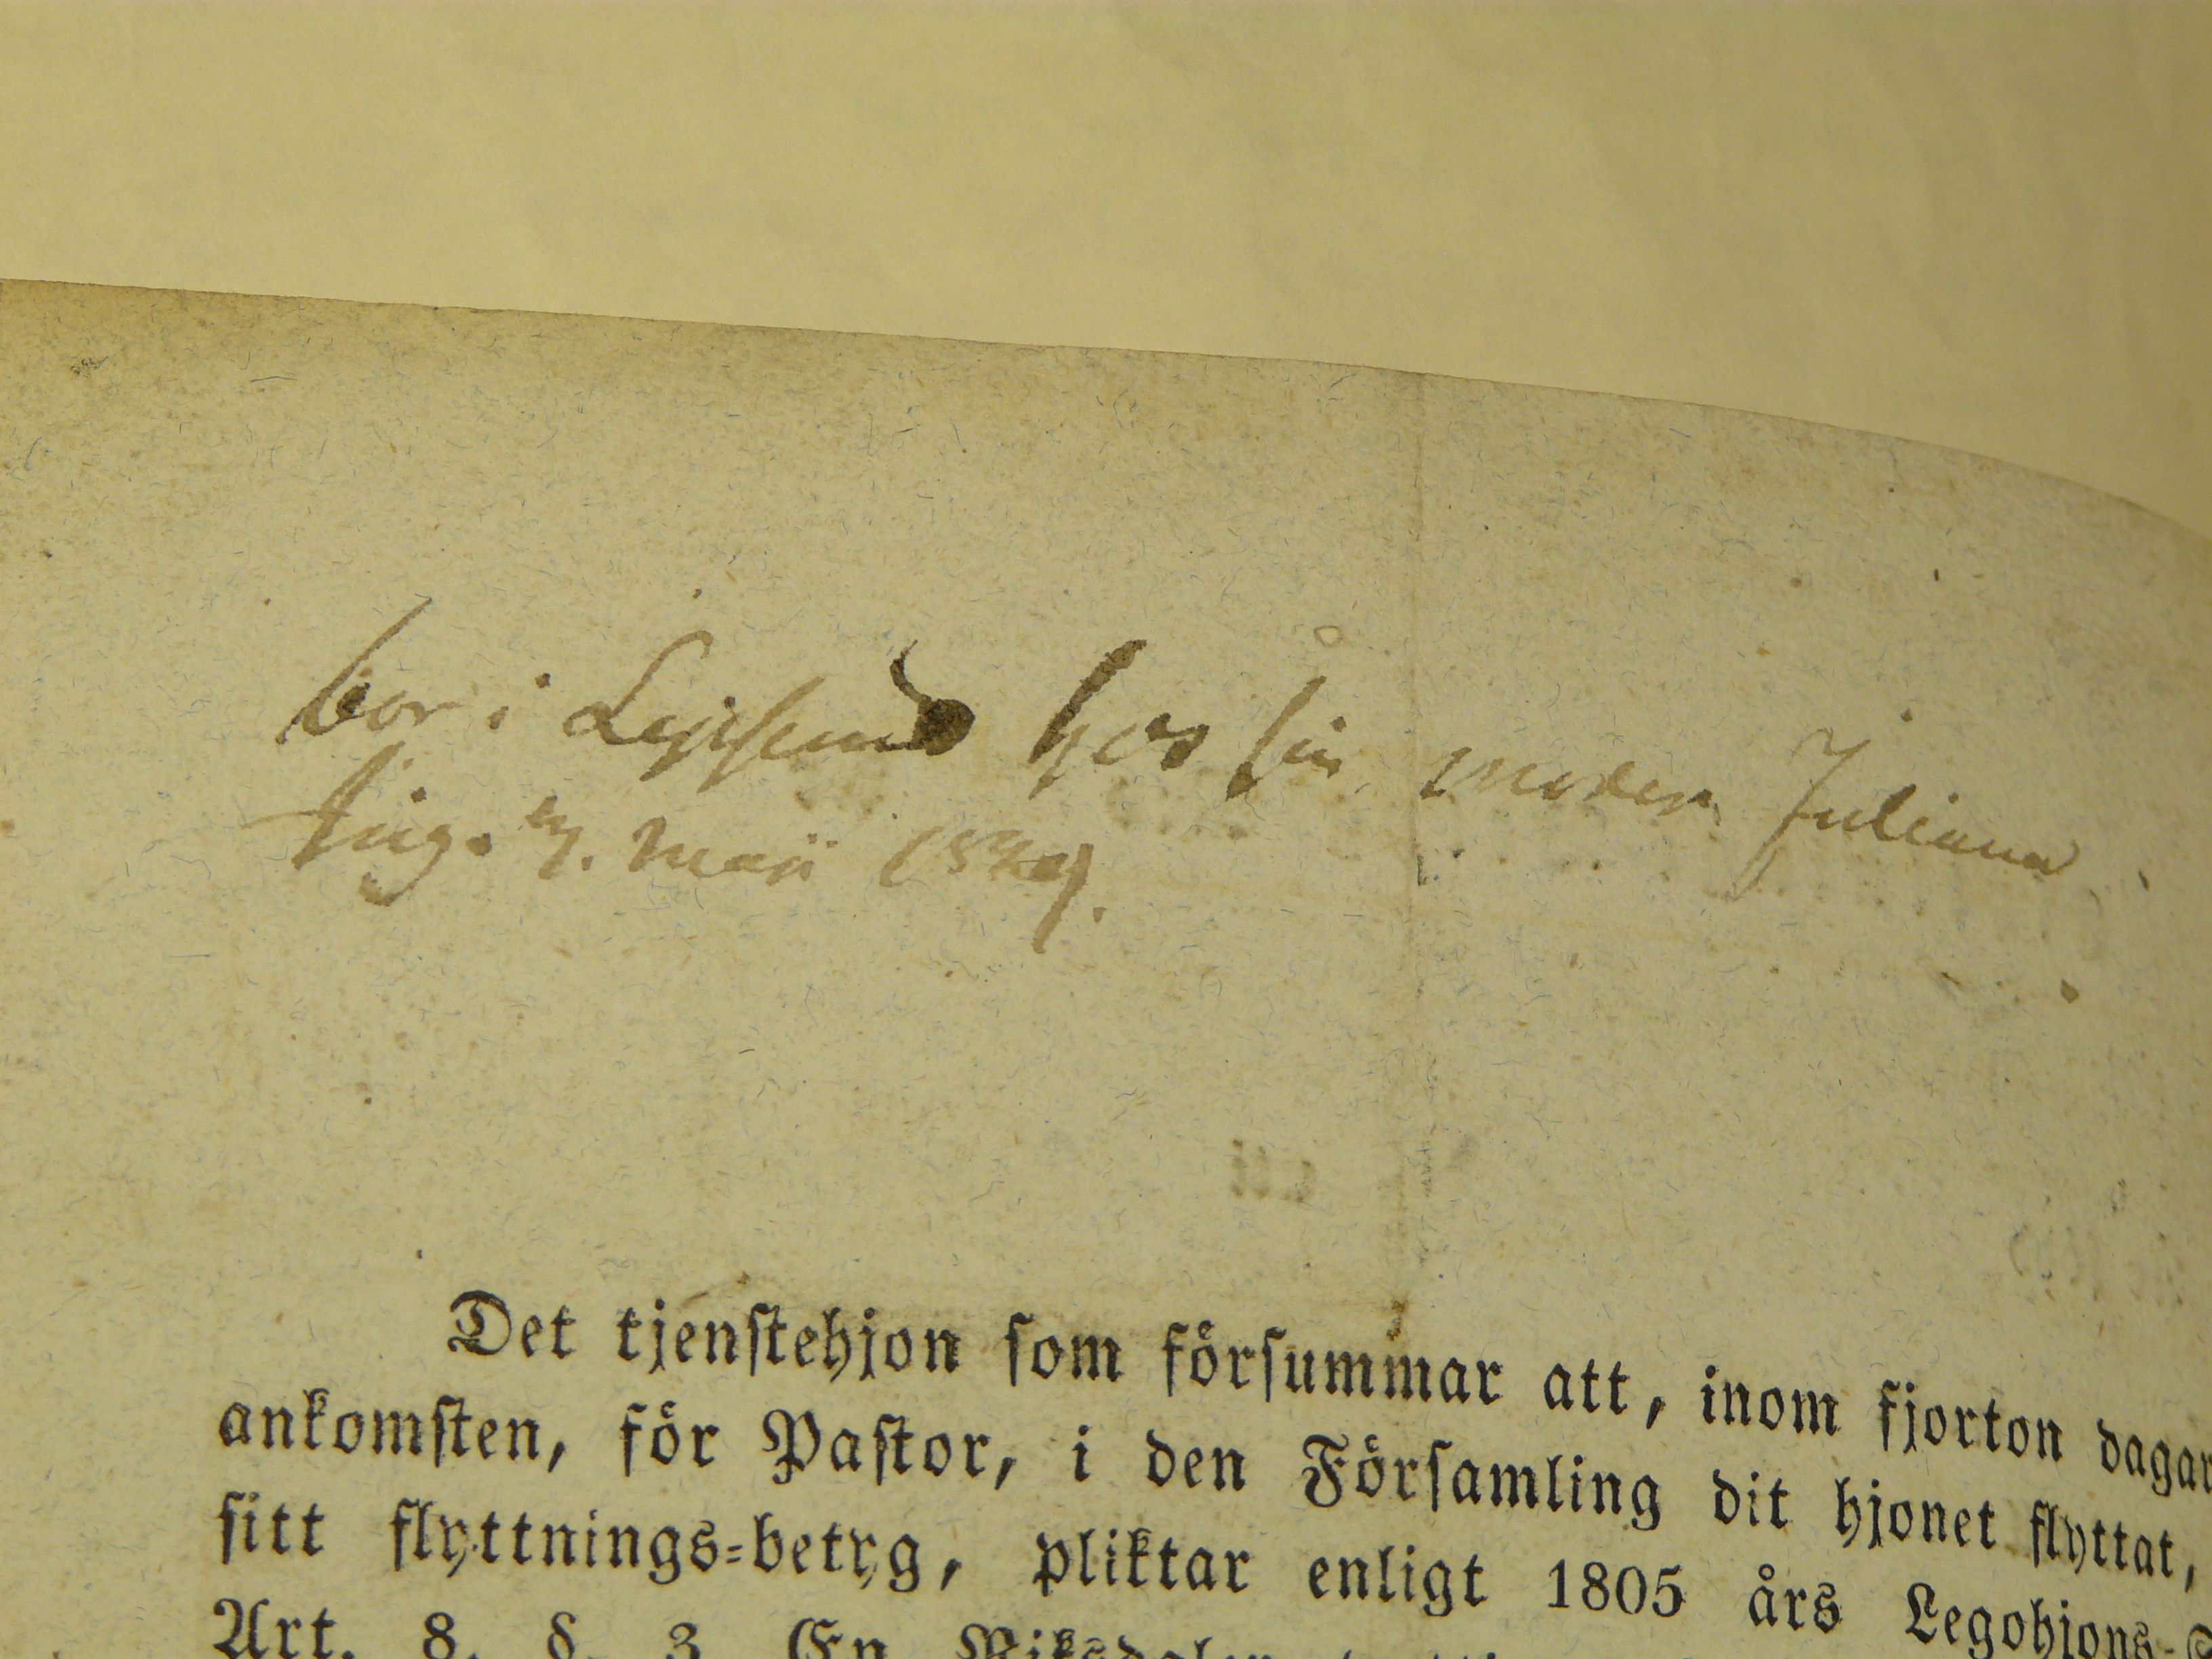 bor i hos sin moder Juliana
Maji
Det tjenstehjon som försummar att, inom fjorton dagar
ankomsten, för Pastor, i den Församling dit hjonet flyttat,
sitt flyttnings-betyg, pliktar enligt 1805 års Legohjons-
Art. 8. §. 3 En Riksdaler